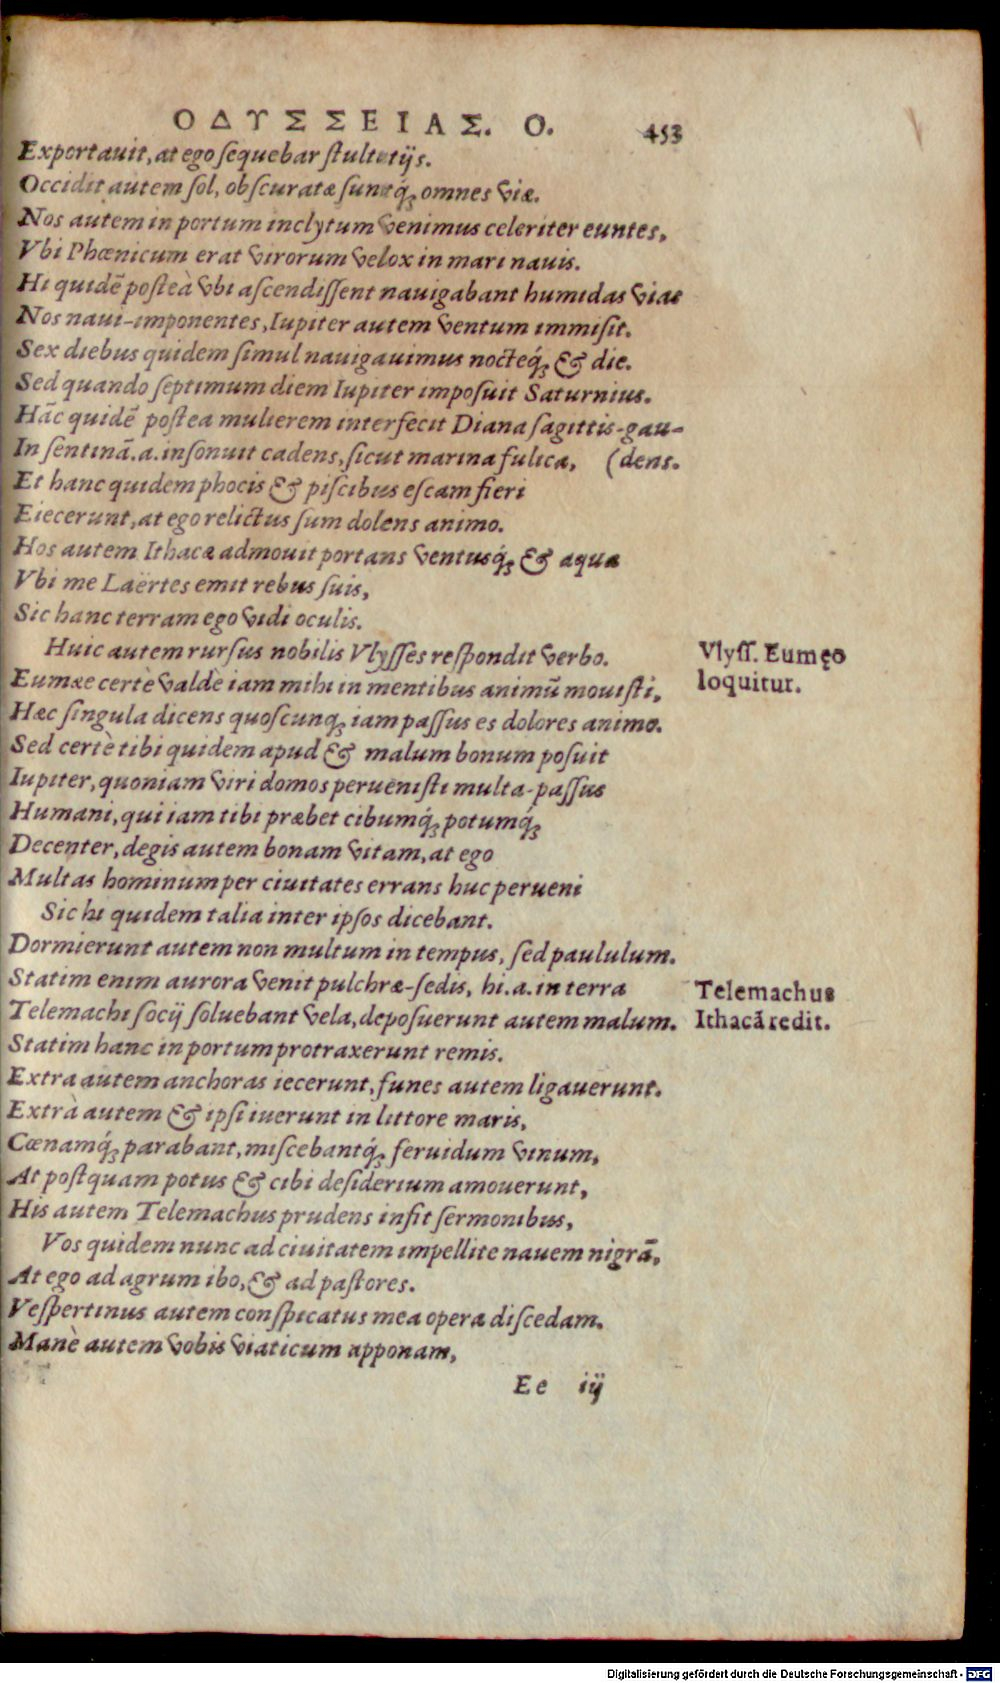 ΟΔΥΣΣΕΙΑΣ. Ο. 453
Exportauit, at ego sequebar stultitijs.
Occidit autem sol, obscuratæ suntq́; omnes viæ.
Nos autem in portum inclytum venimus celeriter euntes,
Vbi Phœnicum erat virorum velox in mari nauis.
Hi quidẽ posteà vbi ascendissent nauigabant humidas vias
Nos naui-imponentes, Iupiter autem ventum immisit.
Sex diebus quidem simul nauigauimus nocteq́; & die.
Sed quando septimum diem Iupiter imposuit Saturnius.
Hãc quidẽ postea mulierem interfecit Diana sagittis-gau-
In sentinã.a.insonuit cadens, sicut marina fulica, (dens.
Et hanc quidem phocis & piscibus escam fieri
Eiecerunt, at ego relictus sum dolens animo.
Hos autem Ithacæ admouit portans ventusq́; & aqua
Vbi me Laërtes emit rebus suis,
Sic hanc terram ego vidi oculis.
Huic autem rursus nobilis Vlysses respondit verbo.
Eumæe certè valdè iam mihi in mentibus animũ mouisti,
Hæc singula dicens quoscunq; iam passus es dolores animo.
Sed certè tibi quidem apud & malum bonum posuit
Iupiter, quoniam viri domos peruenisti multa-passus
Humani, qui iam tibi præbet cibumq́; potumq́;
Decenter, degis autem bonam vitam, at ego
Multas hominum per ciuitates errans huc perueni
Sic hi quidem talia inter ipsos dicebant.
Dormierunt autem non multum in tempus, sed paululum.
Statim enim aurora venit pulchræ-sedis, hi.a.in terra
Telemachi socij soluebant vela, deposuerunt autem malum.
Statim hanc in portum protraxerunt remis.
Extra autem anchoras iecerunt, funes autem ligauerunt.
Extrà autem & ipsi iuerunt in littore maris,
Cœnamq́; parabant, miscebantq́; feruidum vinum,
At postquam potus & cibi desiderium amouerunt,
His autem Telemachus prudens infit sermonibus,
Vos quidem nunc ad ciuitatem impellite nauem nigrã,
At ego ad agrum ibo, & ad pastores.
Vespertinus autem conspicatus mea opera discedam.
Manè autem vobis viaticum apponam,
Ee iij
Vlyss. Eumęo
loquitur.
Telemachus
Ithacã redit.
Digitalisierung gefördert durch die Deutsche Forschungsgemeinschaft - DFG